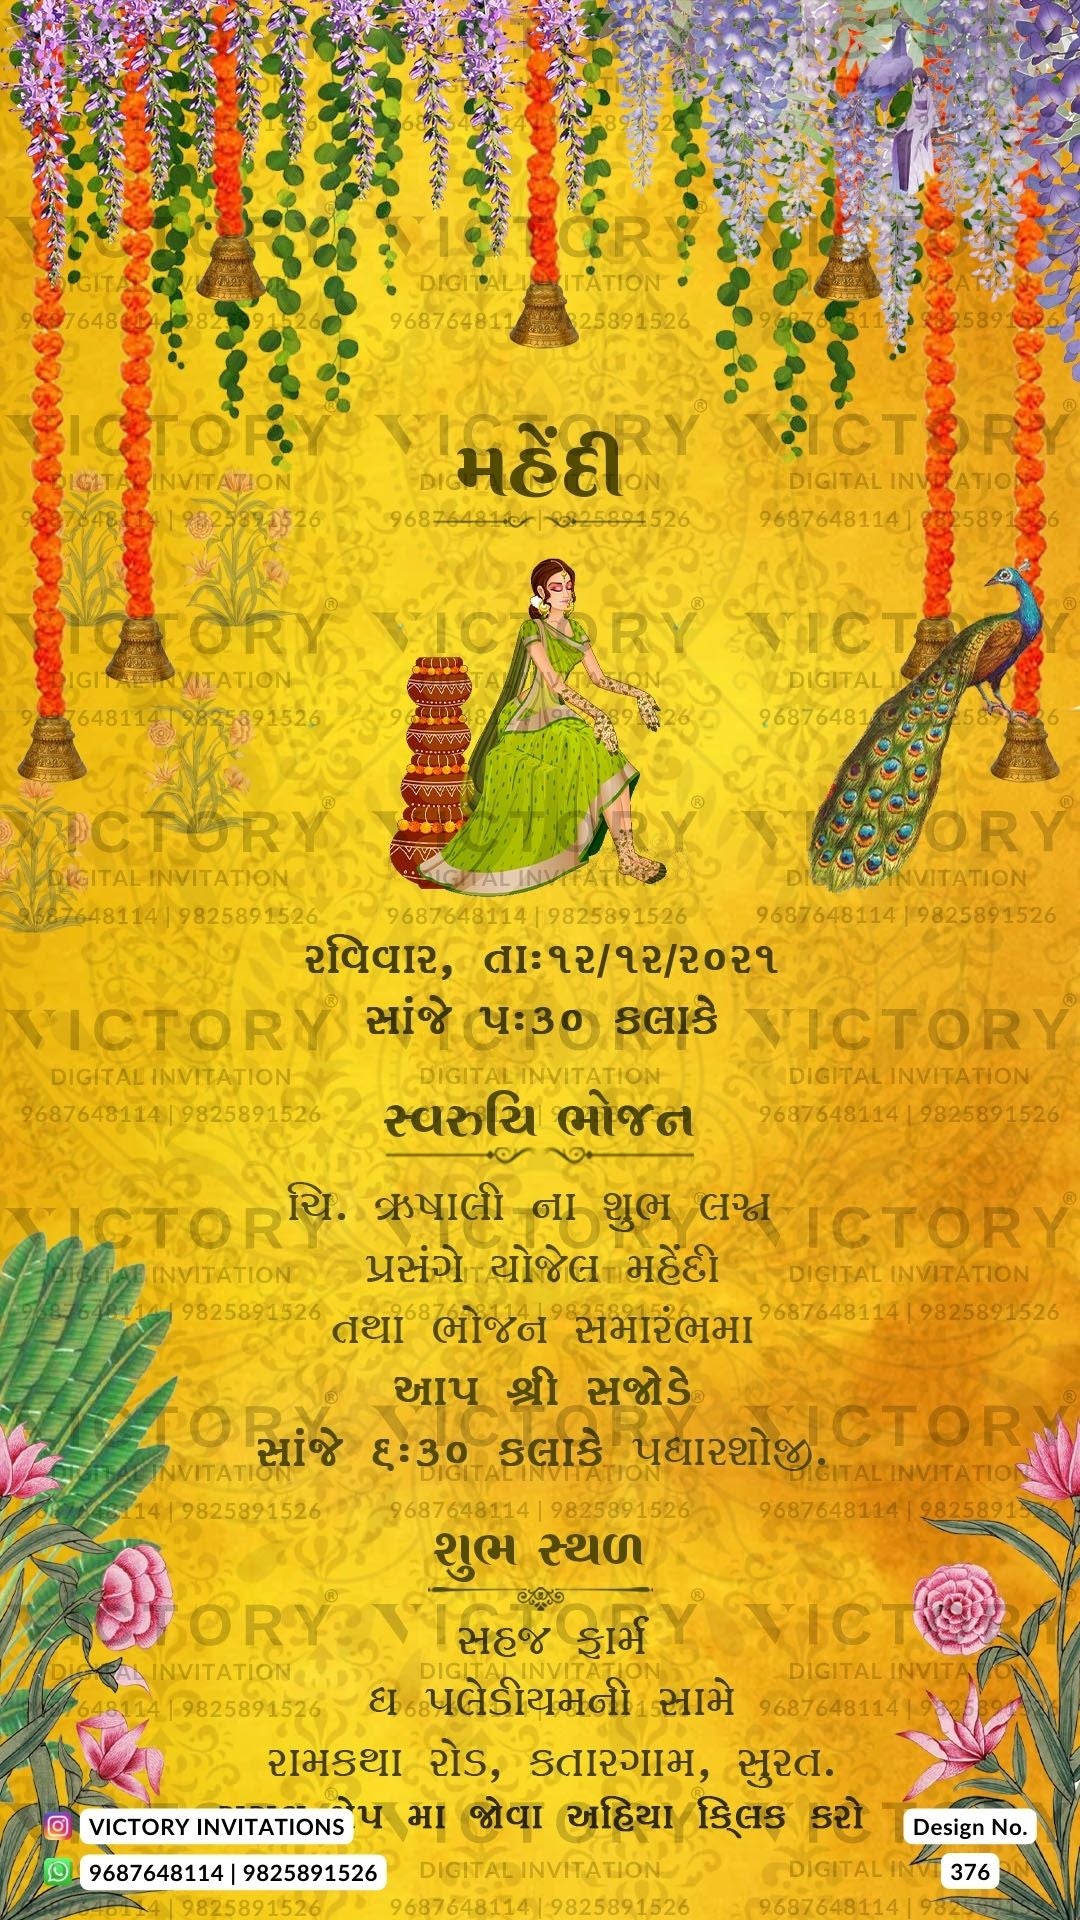 મહેંદી
રવિવાર, તાઃ૧૨/૧૨/૨૦૨૧
સાંજે ૫ઃ૩૦ કલાકે
સ્વરુચિ ભોજન
ચિ. ઋષાલી ના શુભ લગ્ન
પ્રસંગે યોજેલ મહેંદી
તથા ભોજન સમારંભમા
આપ શ્રી સજોડે
સાંજે ૬ઃ૩૦ કલાકે પધારશોજી.
શુભ સ્થળ
સહજ ફાર્મ
ધ પલેડીયમની સામે
રામકથા રોડ, કતારગામ, સુરત.
મા જોવા અહિયા ક્લિક કરો
VICTORY INVITATIONS
9687648114 | 9825891526
Design No.
376
VICTORY®
DIGITAL INVITATION
9687648114 | 9825891526